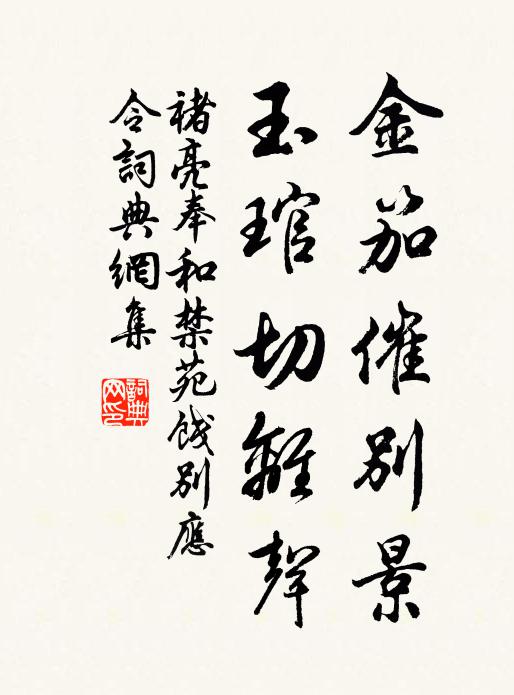 金笳催别景
玉琯切離聲
褚亮奉和禁苑餞别應
令詞典網集
詞典
网印